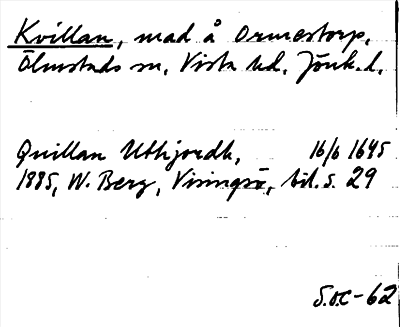 Kvillan, mad å Ormestorp,
Ölmstads sn, Vista hd, Jönk. l.
Quillan Uthjordh, 16/6 1645
1885, W. Berg, Visingsö, bil. s. 29
S.O.C-62